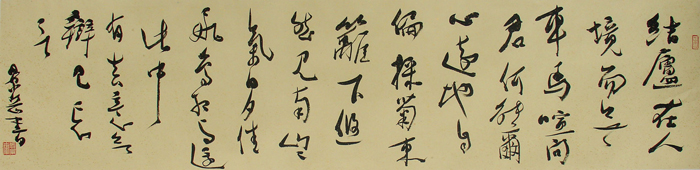 結廬在人
境而无
車馬喧問
君何能爾
心遠地自
偏採菊東
籬下悠
然見南山
氣日夕佳
飛鳥相與還
此中
有真意欲
辯已忘
言
書